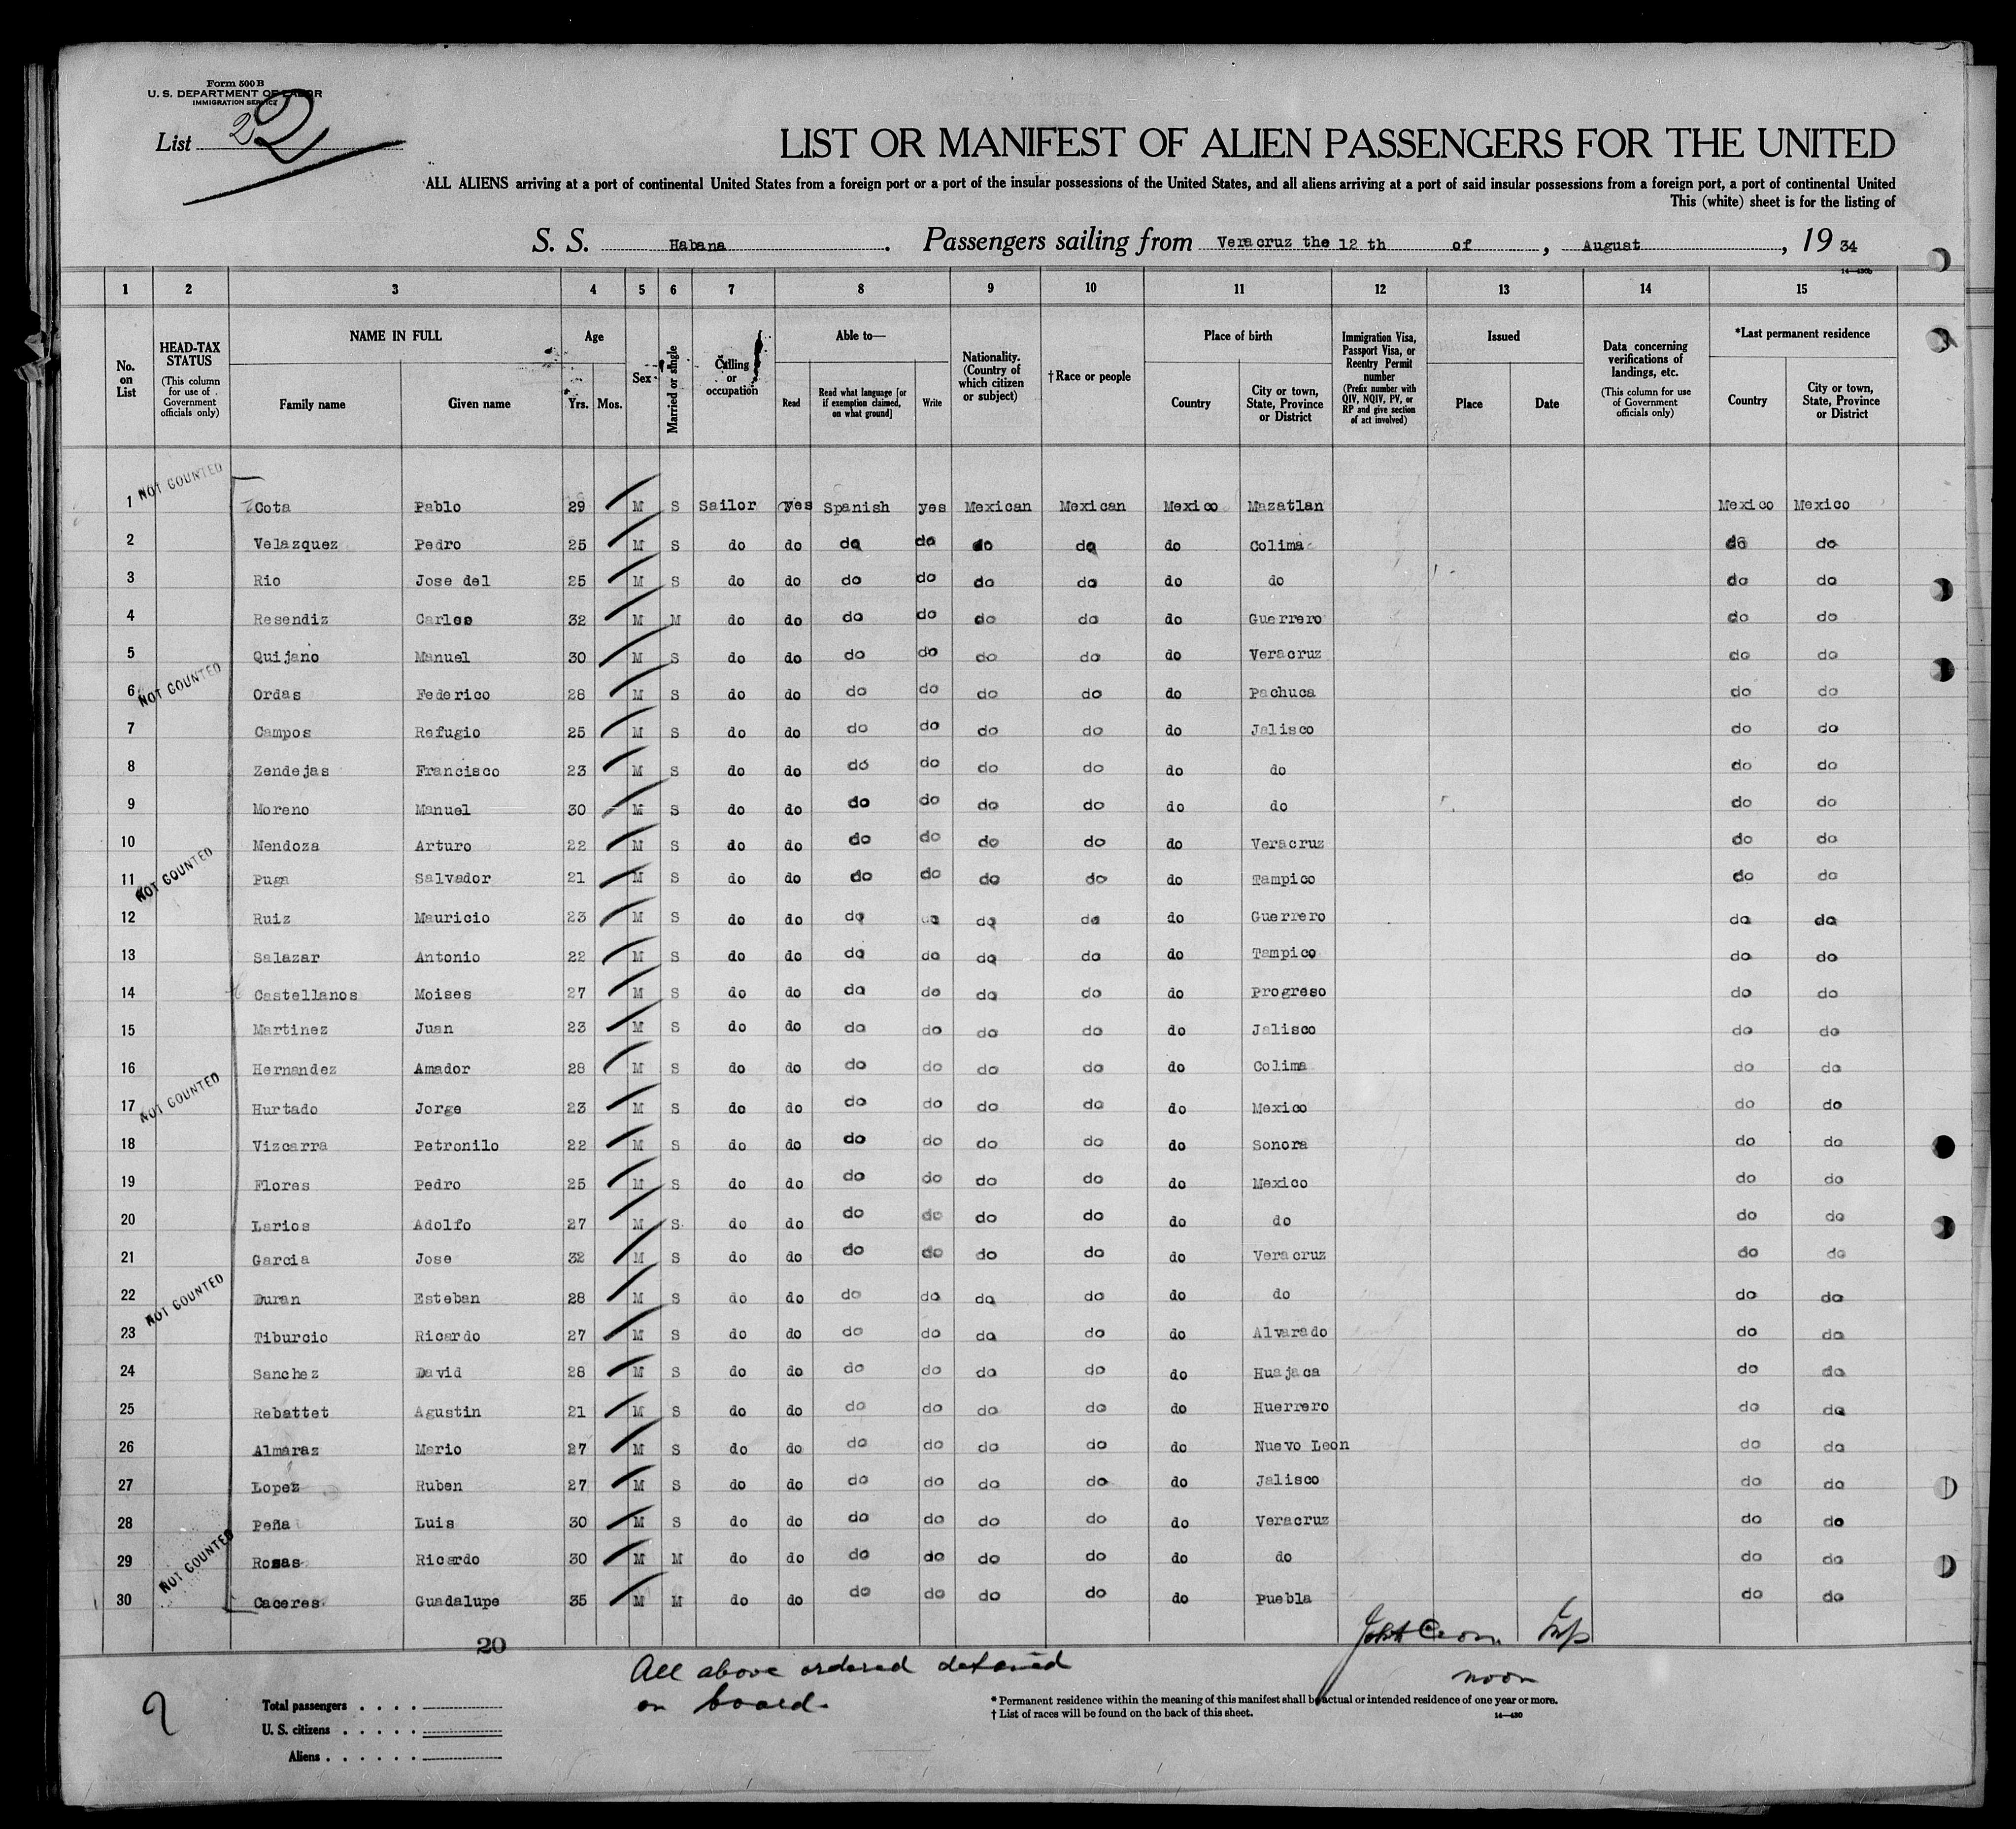 Form 500 B
U. S. DEPARTMENT OF LABOR
IMMIGRATION SERVICE
List 2 2
LIST OR MANIFEST OF ALIEN PASSENGERS FOR THE UNITED
ALL ALIENS arriving at a port of continental United States from a foreign port or a port of the insular possessions of the United States, and all aliens arriving at a port of said insular possessions from a foreign port, a port of continental United
This (white) sheet is for the listing of
S. S. Habana. Passengers sailing from Veracruz the 12 th of, August, 19 34
14—430b
1 2 3 4 5 6 7 8 9 10 11 12 13 14 15
No. on List
HEAD-TAX STATUS (This column for use of Government officials only)
NAME IN FULL Family name Given name
Age Yrs. Mos.
Sex
Married or single
Calling or occupation
Able to— Read Read what language [or if exemption claimed, on what ground] Write
Nationality. (Country of which citizen or subject)
†Race or people
Place of birth Country City or town, State, Province or District
Immigration Visa, Passport Visa, or Reentry Permit number (Prefix number with QIV, NQIV, PV, or RP and give section of act involved)
Issued Place Date
Data concerning verifications of landings, etc. (This column for use of Government officials only)
*Last permanent residence Country City or town, State, Province or District
NOT COUNTED
1 Cota Pablo 29 M S Sailor yes Spanish yes Mexican Mexican Mexico Mazatlan Mexico Mexico
2 Velazquez Pedro 25 M S do do do do do do do Colima do do
3 Rio Jose del 25 M S do do do do do do do do do do
4 Resendiz Carlos 32 M M do do do do do do do Guerrero do do
5 Quijano Manuel 30 M S do do do do do do do Veracruz do do
NOT COUNTED
6 Ordas Federico 28 M S do do do do do do do Pachuca do do
7 Campos Refugio 25 M S do do do do do do do Jalisco do do
8 Zendejas Francisco 23 M S do do do do do do do do do do
9 Moreno Manuel 30 M S do do do do do do do do do do
10 Mendoza Arturo 22 M S do do do do do do do Veracruz do do
NOT COUNTED
11 Puga Salvador 21 M S do do do do do do do Tampico do do
12 Ruiz Mauricio 23 M S do do do do do do do Guerrero do do
13 Salazar Antonio 22 M S do do do do do do do Tampico do do
14 Castellanos Moises 27 M S do do do do do do do Progreso do do
15 Martinez Juan 23 M S do do do do do do do Jalisco do do
16 Hernandez Amador 28 M S do do do do do do do Colima do do
NOT COUNTED
17 Hurtado Jorge 23 M S do do do do do do do Mexico do do
18 Vizcarra Petronilo 22 M S do do do do do do do Sonora do do
19 Flores Pedro 25 M S do do do do do do do Mexico do do
20 Larios Adolfo 27 M S do do do do do do do do do do
21 Garcia Jose 32 M S do do do do do do do Veracruz do do
NOT COUNTED
22 Duran Esteban 28 M S do do do do do do do do do do
23 Tiburcio Ricardo 27 M S do do do do do do do Alvarado do do
24 Sanchez David 28 M S do do do do do do do Huajaca do do
25 Rebattet Agustin 21 M S do do do do do do do Huerrero do do
26 Almaraz Mario 27 M S do do do do do do do Nuevo Leon do do
27 Lopez Ruben 27 M S do do do do do do do Jalisco do do
28 Peña Luis 30 M S do do do do do do do Veracruz do do
NOT COUNTED
29 Rosas Ricardo 30 M M do do do do do do do do do do
30 Caceres Guadalupe 35 M M do do do do do do do Puebla do do
20
All above ordered detained
on board.
noon
Total passengers . . . .
U. S. citizens . . . . .
Aliens . . . . . .
* Permanent residence within the meaning of this manifest shall be actual or intended residence of one year or more.
† List of races will be found on the back of this sheet.
14—430